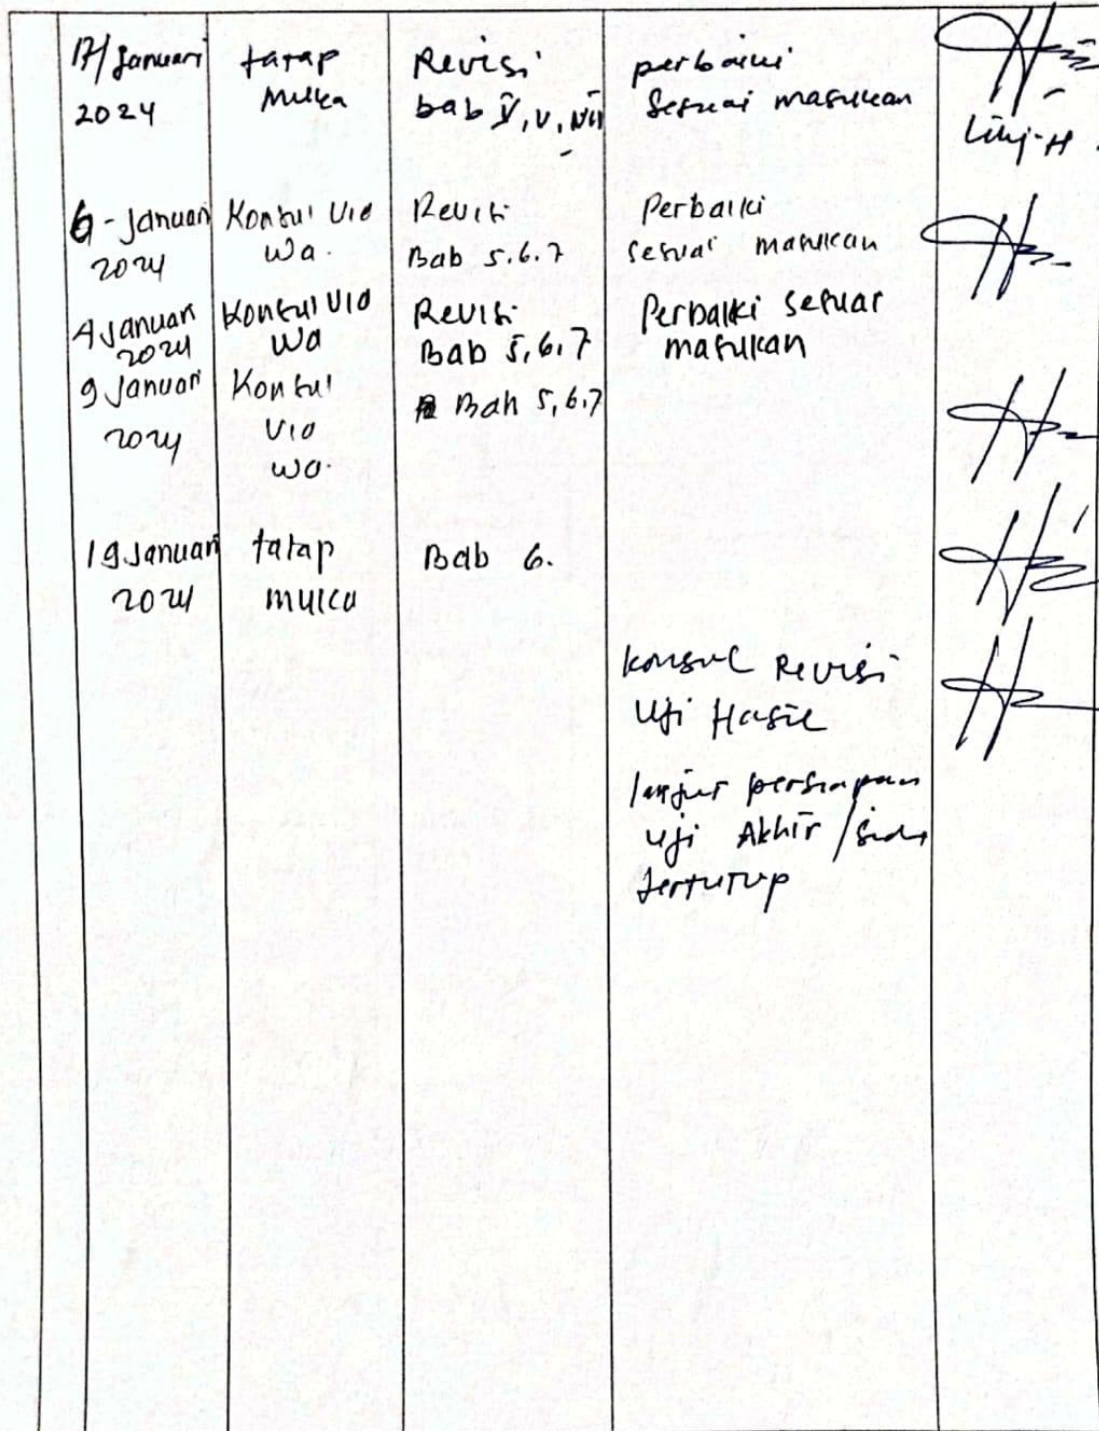 17/Januari
2024
tatap
Muka
Revisi
bab IV, V, VII
perbaiki
Sesuai masukan
6 - Januari
2024
Konsul Via
Wa.
Revisi
Bab 5.6.7
Perbaiki
sesuai masukan
4 Januari
2024
Konsul Via
Wa
Revisi
Bab 5,6,7
Perbaiki sesuai
masukan
9 Januari
2024
Konsul
Via
wa.
Bab 5,6,7
19 Januari
2024
tatap
muka
Bab 6.
Konsul Revisi
Uji Hasil
lanjut persiapan
Uji Akhir /
tertutup